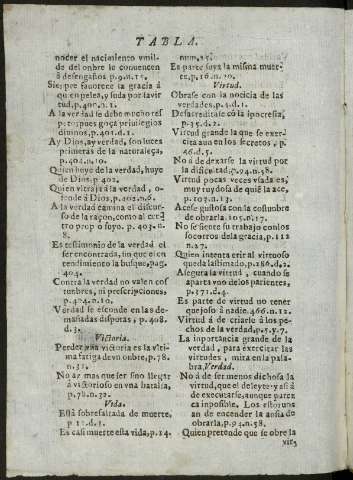 TABLA.
nocer el nacimiento vmil-
de del onbre le convencen
desengaños p.9.n.12.
Sienpre favorece la gracia á
quien pelea, y suda por la vir
tud, p.400.n.1.
A la verdad se debe mucho res
peto, pues goça privilegios
divinos, p.401.d.1.
Ay Dios, ay verdad, son luces
primeras de la naturaleça,
p.402.n.10.
Quien huye de la verdad, huye
de Dios, p.402.
Quien vltraja á la verdad, o-
fende á Dios, p.402.n.6.
A la verdad camina el discur-
so de la raçon, como al
tro propio suyo. p.403.n.
8.
Es testimonio de la verdad el
ser encontrada, sin que el en
tendimiento la busque, pag.
404.
Contra la verdad no valen cos
tunbres, ni prescripciones,
p.404.n.10.
Verdad se esconde en las de-
masiadas disputas, p.408.
d.3.
Victoria.
Perder vna victoria es la vlti-
ma fatiga de vn onbre, p.78.
n.31.
No ay mas que ser sino llegar
á victorioso en vna batalla,
p.78.n.32.
Vida.
Está sobresaltada de muerte,
p.12.d.3.
Es casi muerte esta vida, p.14.
num.25.
Es parte suya la misma muer-
te, p.16.n.30.
Virtud.
Obrase con la noticia de las
verdades, p.5.d.1.
Desacreditase có la ipocresia,
p.35.d.2.
Virtud grande la que se exer-
cita aun en los secretos, p.
46.d.5.
No á de dexarse la virtud por
la dificultad, p.94.n.58.
Virtud pocas veces vsada es
muy ruydosa de quié la ace,
p.103.n.13.
Acese gustosa con la costunbre
de obrarla, 105.n.17.
No se siente su trabajo con los
socorros de la gracia, p.112
n.27.
Quien intenta erir al virtuoso
queda lastimado, p.286.d.2.
Asegura la virtud, cuando se
aparta vno de los parientes,
p.371.d.4.
Es parte de virtud no tener
quejosos á nadie. 466.n.12.
Virtud á de criarse á los pe-
chos de la verdad, p.5.y.7.
La inportancia grande de la
verdad, para exercitar las
virtudes, mira en la pala-
bra, Verdad.
No á de ser menos dichosa la
virtud, que el deleyte, y asi á
de executarse, aunque parez
ca inposible. Los estorvos
an de encender la ansia de
obrarla, p.94.n.58.
Quien pretende que se obre la